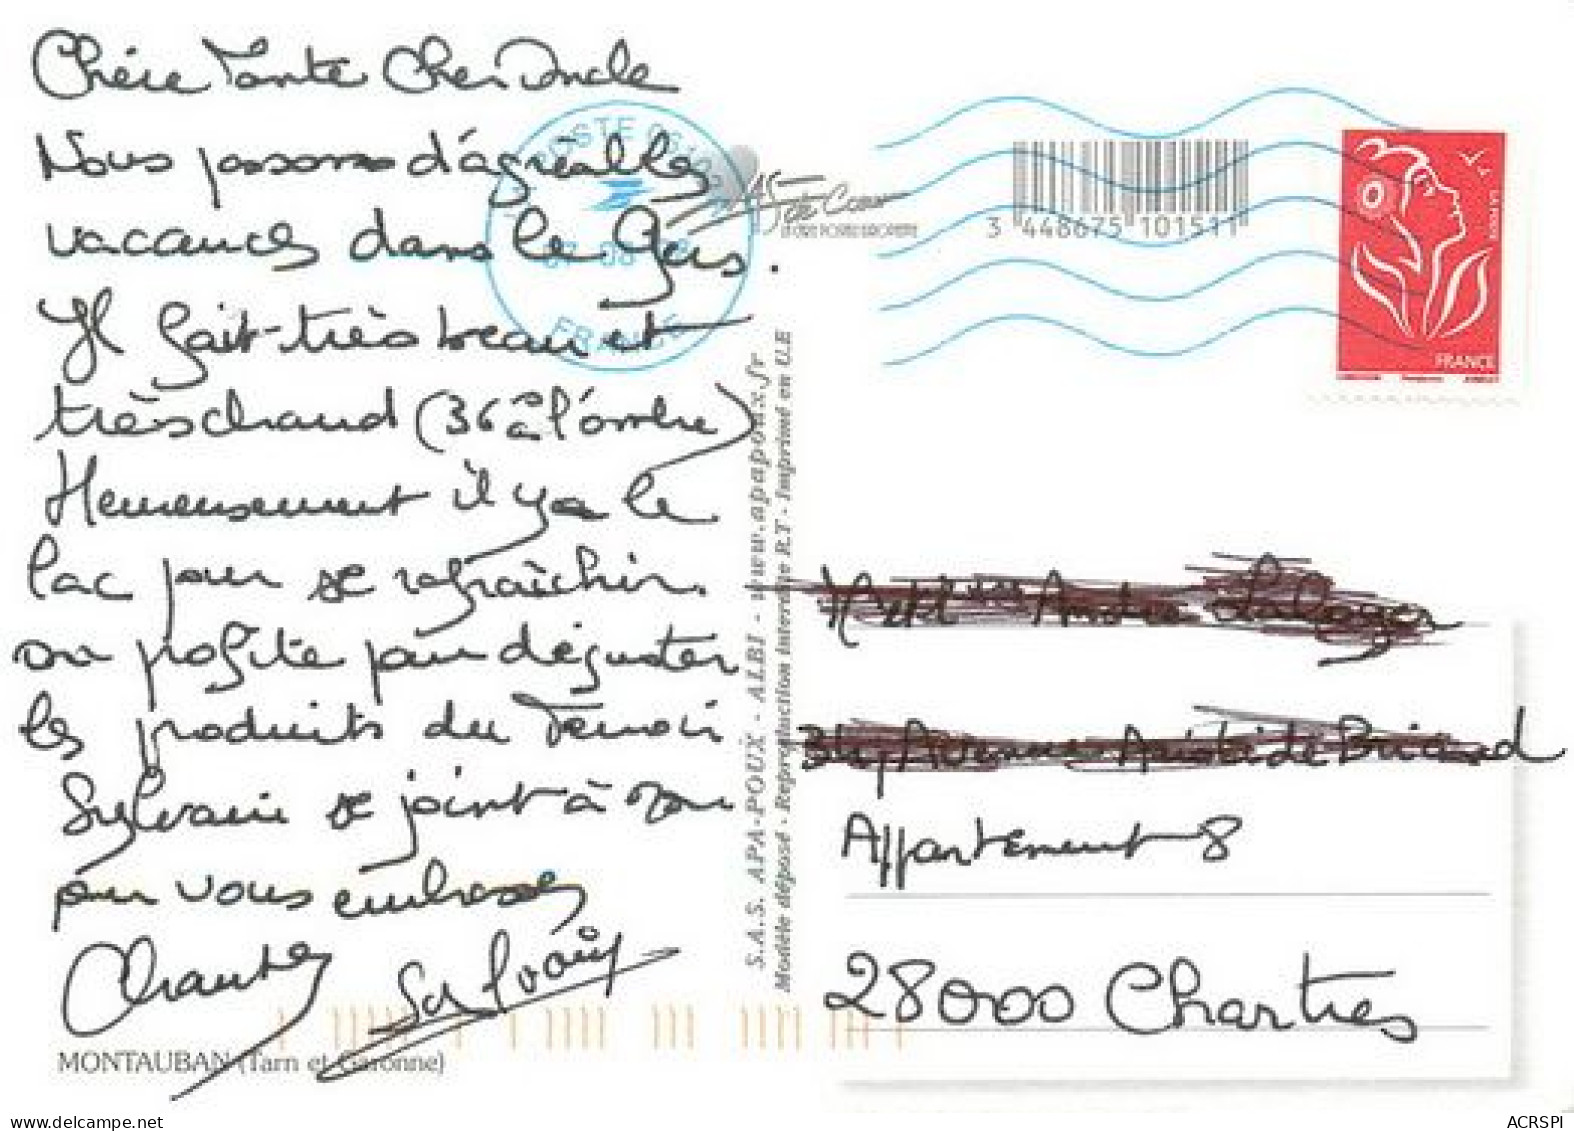 Chère Tante Cher Oncle
Nous passons d'agréables
vacances dans le Gers.
Il fait très beau et
très chaud (36° à l'ombre)
Heureusement il y a le
lac pour se rafraîchir.
on profite pour déguster
les produits du Terroir
Sylvain se joint à moi
pour vous embrasser
Chantal
Sylvain
MONTAUBAN (Tarn et Garonne)
LA POSTE
FRANCE
AS de Coeur
LA CARTE POSTALE EUROPEENNE
3 448675 101511
LA POSTE
FRANCE
S.A.S. APA-POUX - ALBI - www.apapoux.fr
Modèle déposé - Reproduction interdite R.T - Imprimé en U.E
Appartement 8
28000 Chartres
ACRSPI